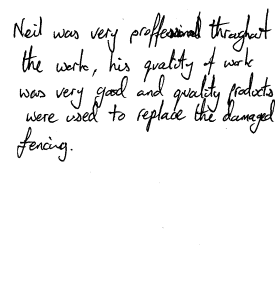 Neil was very proffessional throughout
the work, his quality of work
was very good and quality products
were used to replace the damaged
fencing.